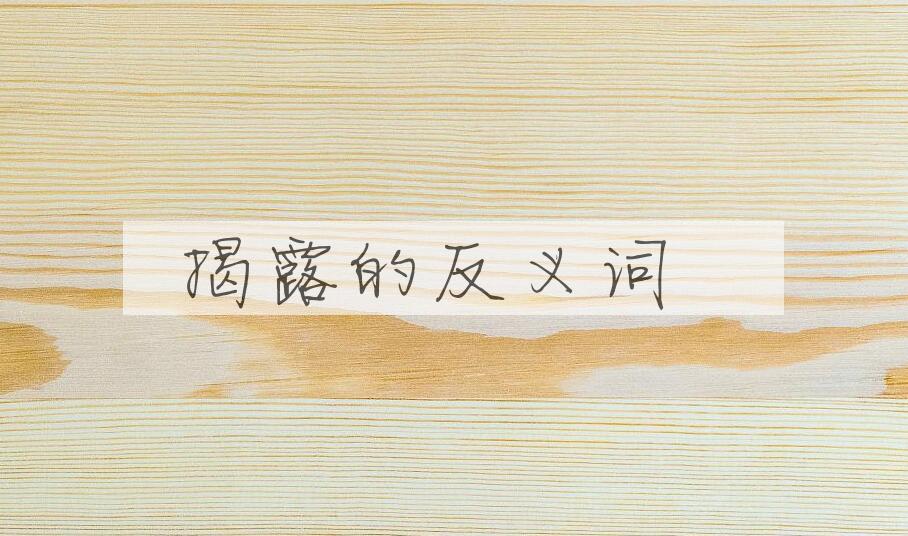 揭露的反义词